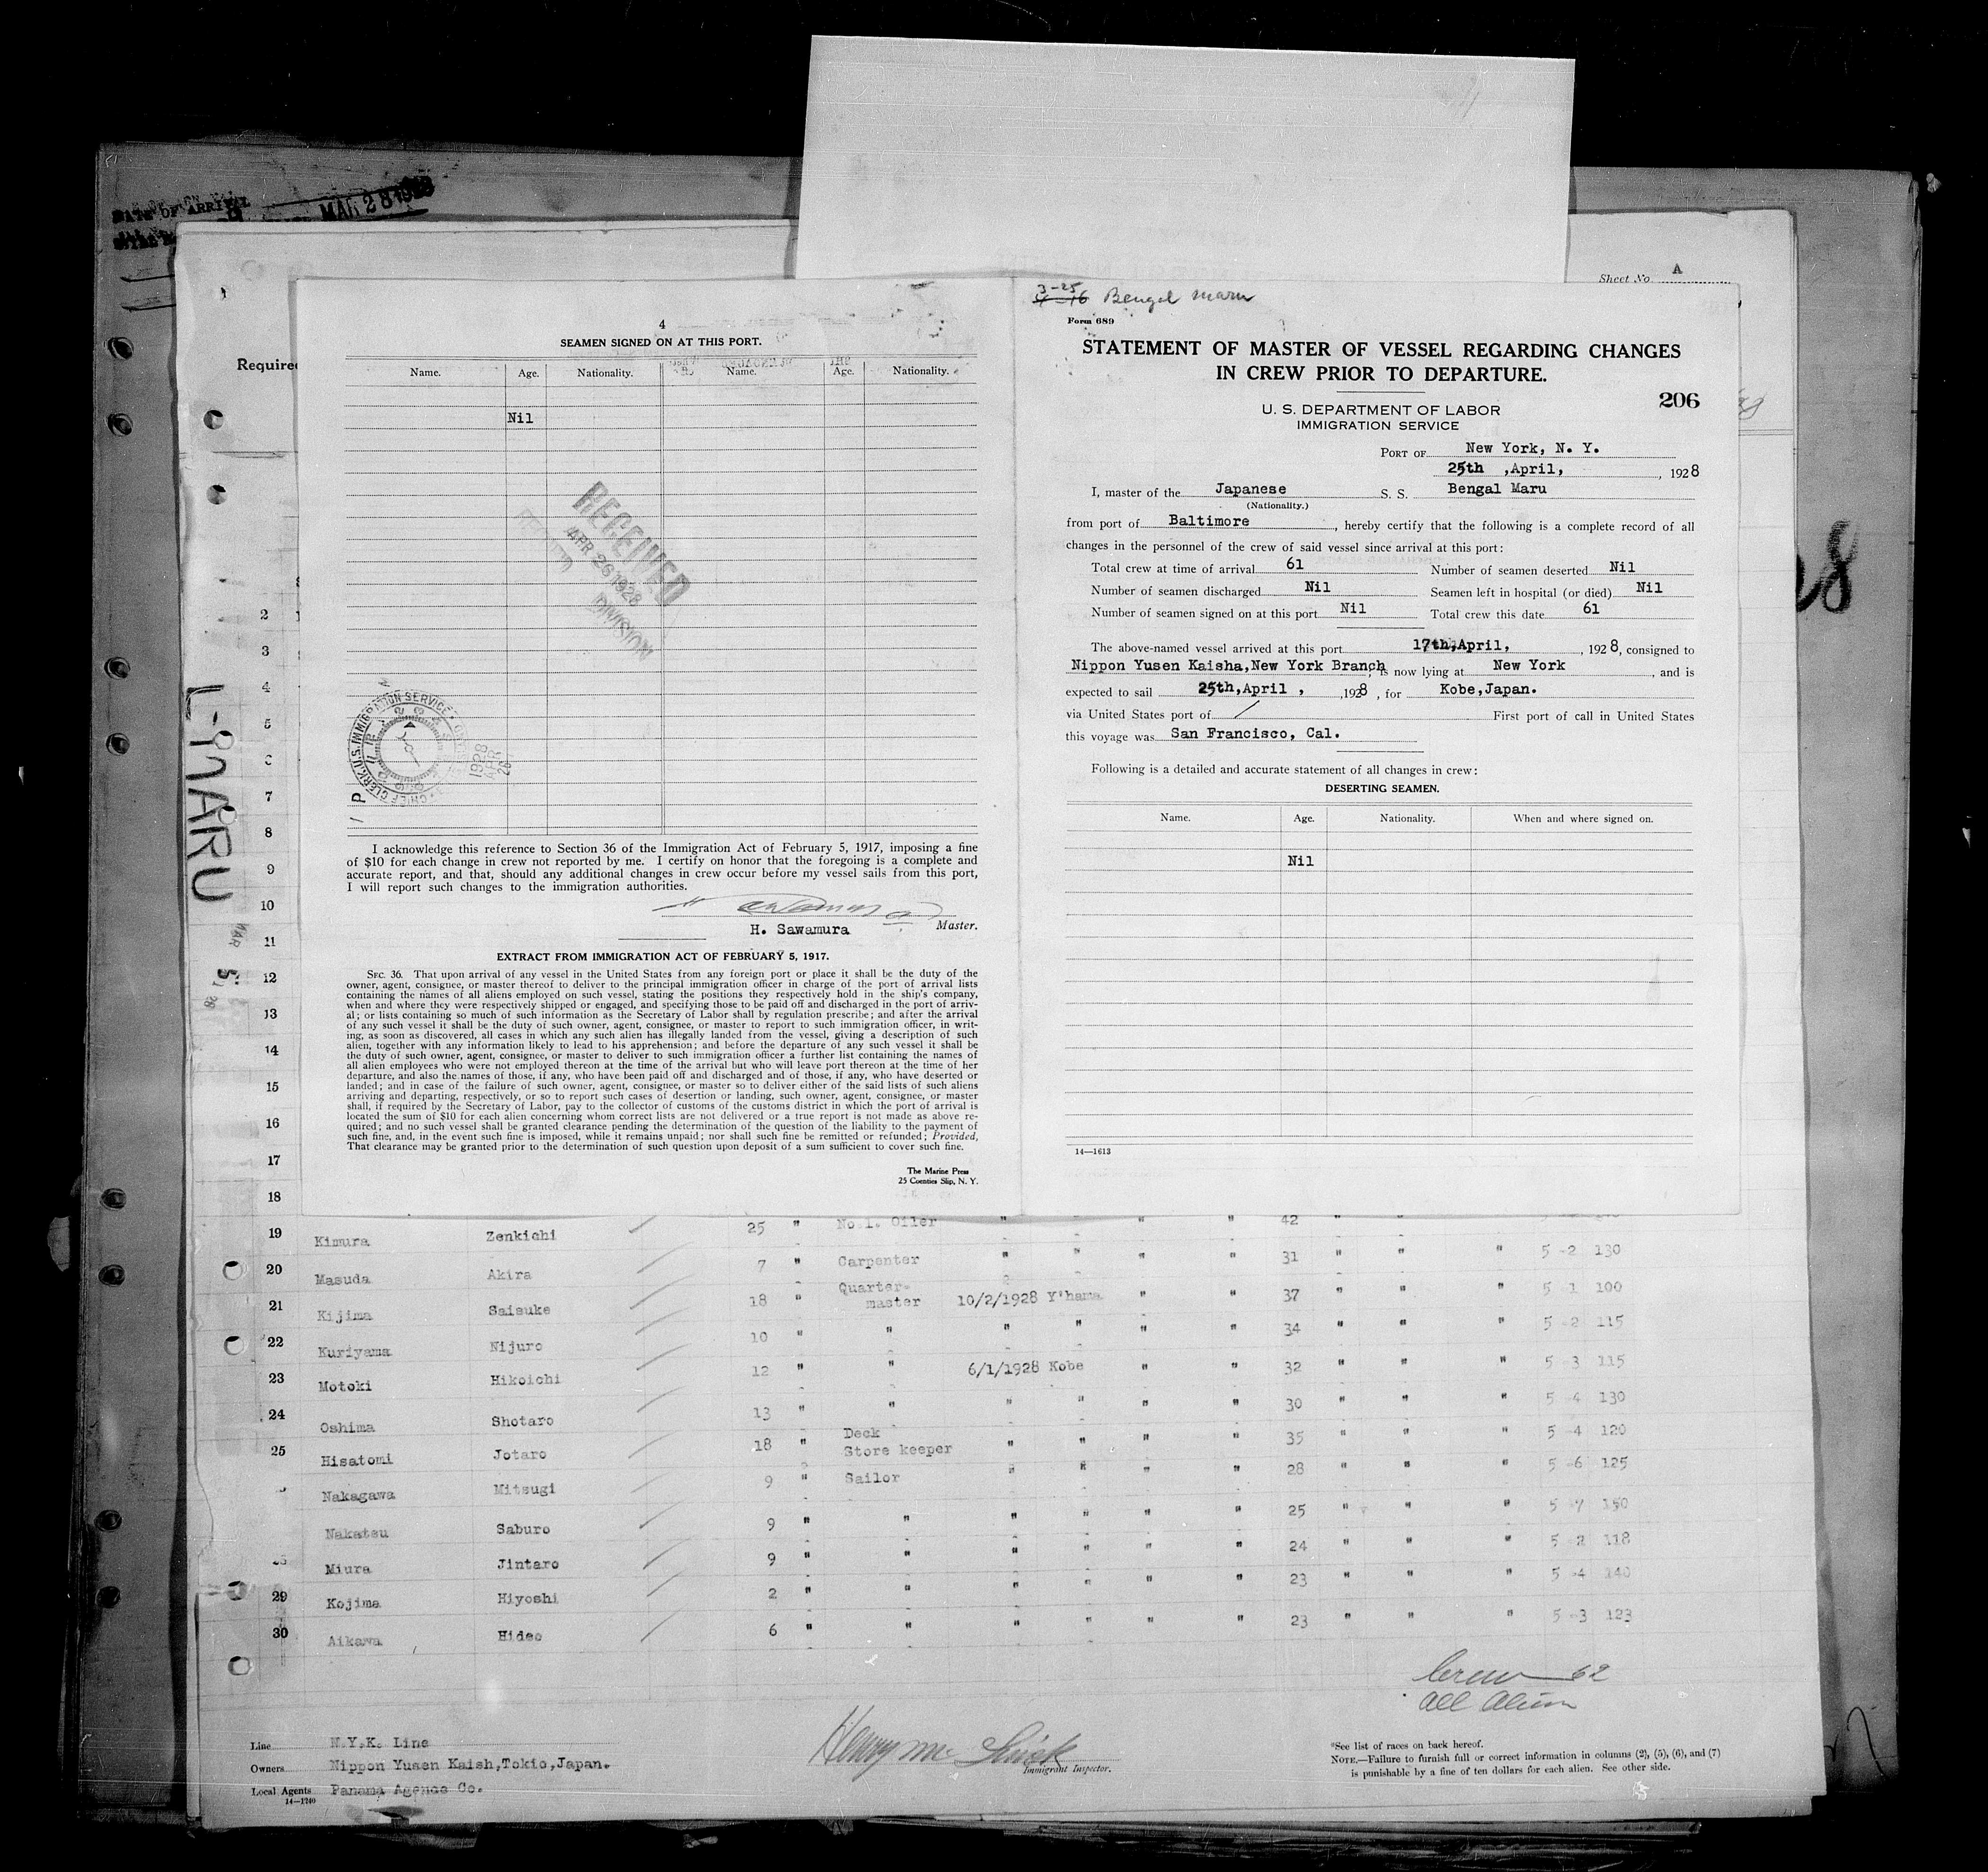 DATE OF ARRIVAL
MAR 28 1928
Sheet No. A
Required
4
SEAMEN SIGNED ON AT THIS PORT.
Name. Age. Nationality. Name. Age. Nationality.
Nil
RECEIVED
APR 26 1928
DIVISION
1928
APR
26
I acknowledge this reference to Section 36 of the Immigration Act of February 5, 1917, imposing a fine
of $10 for each change in crew not reported by me. I certify on honor that the foregoing is a complete and
accurate report, and that, should any additional changes in crew occur before my vessel sails from this port,
I will report such changes to the immigration authorities.
H. Sawamura Master.
EXTRACT FROM IMMIGRATION ACT OF FEBRUARY 5, 1917.
SEC. 36. That upon arrival of any vessel in the United States from any foreign port or place it shall be the duty of the
owner, agent, consignee, or master thereof to deliver to the principal immigration officer in charge of the port of arrival lists
containing the names of all aliens employed on such vessel, stating the positions they respectively hold in the ship's company,
when and where they were respectively shipped or engaged, and specifying those to be paid off and discharged in the port of arriv-
al; or lists containing so much of such information as the Secretary of Labor shall by regulation prescribe; and after the arrival
of any such vessel it shall be the duty of such owner, agent, consignee, or master to report to such immigration officer, in writ-
ing, as soon as discovered, all cases in which any such alien has illegally landed from the vessel, giving a description of such
alien, together with any information likely to lead to his apprehension; and before the departure of any such vessel it shall be
the duty of such owner, agent, consignee, or master to deliver to such immigration officer a further list containing the names of
all alien employees who were not employed thereon at the time of the arrival but who will leave port thereon at the time of her
departure, and also the names of those, if any, who have been paid off and discharged and of those, if any, who have deserted or
landed; and in case of the failure of such owner, agent, consignee, or master so to deliver either of the said lists of such aliens
arriving and departing, respectively, or so to report such cases of desertion or landing, such owner, agent, consignee, or master
shall, if required by the Secretary of Labor, pay to the collector of customs of the customs district in which the port of arrival is
located the sum of $10 for each alien concerning whom correct lists are not delivered or a true report is not made as above re-
quired; and no such vessel shall be granted clearance pending the determination of the question of the liability to the payment of
such fine, and, in the event such fine is imposed, while it remains unpaid; nor shall such fine be remitted or refunded; Provided,
That clearance may be granted prior to the determination of such question upon deposit of a sum sufficient to cover such fine.
The Marine Press
25 Coenties Slip, N. Y.
3-25
Bengal Maru
Form 689
STATEMENT OF MASTER OF VESSEL REGARDING CHANGES
IN CREW PRIOR TO DEPARTURE.
206
U. S. DEPARTMENT OF LABOR
IMMIGRATION SERVICE
PORT OF New York, N. Y.
25th ,April, , 1928
I, master of the Japanese S. S. Bengal Maru
(Nationality.)
from port of Baltimore , hereby certify that the following is a complete record of all
changes in the personnel of the crew of said vessel since arrival at this port:
Total crew at time of arrival 61 Number of seamen deserted Nil
Number of seamen discharged Nil Seamen left in hospital (or died) Nil
Number of seamen signed on at this port Nil Total crew this date 61
The above-named vessel arrived at this port 17th,April, , 1928, consigned to
Nippon Yusen Kaisha,New York Branch, is now lying at New York , and is
expected to sail 25th,April , ,1928 , for Kobe,Japan.
via United States port of / First port of call in United States
this voyage was San Francisco, Cal.
Following is a detailed and accurate statement of all changes in crew:
DESERTING SEAMEN.
Name. Age. Nationality. When and where signed on.
Nil
14—1613
L-MARU
MAR 5
2
3
4
5
6
7
8
9
10
11
12
13
14
15
16
17
18
19 Kimura Zenkichi 25 " No 1. Oiler " " " " 42 " "
20 Masuda Akira 7 " Carpenter " " " " 31 " " " 5 -2 130
21 Kijima Saisuke 18 " Quarter-master 10/2/1928 Y'hama " " 37 " " " 5 1 100
22 Kuriyama Nijuro 10 " " " " " " 34 " " " 5 -2 115
23 Motoki Hikoichi 12 " " 6/1/1928 Kobe " " 32 " " " 5 -3 115
24 Oshima Shotaro 13 " " " " " " 30 " " " 5 -4 130
25 Hisatomi Jotaro 18 " Deck Store keeper " " " " 35 " " " 5 -4 120
Nakagawa Mitsugi 9 " Sailor " " " " 28 " " " 5 -6 125
Nakatsu Saburo 9 " " " " " " 25 " " " 5 -7 150
Miura Jintaro 9 " " " " " " 24 " " " 5 -2 118
29 Kojima Hiyoshi 2 " " " " " " 23 " " " 5 -4 140
30 Aikawa Hideo 6 " " " " " " 23 " " " 5 -3 123
Crew 62
All Alien
Line N.Y.K. Line
Owners Nippon Yusen Kaish,Tokio,Japan.
Local Agents Panama Agence Co.
14—1240
Immigrant Inspector.
*See list of races on back hereof.
NOTE.—Failure to furnish full or correct information in columns (2), (5), (6), and (7)
is punishable by a fine of ten dollars for each alien. See other side.